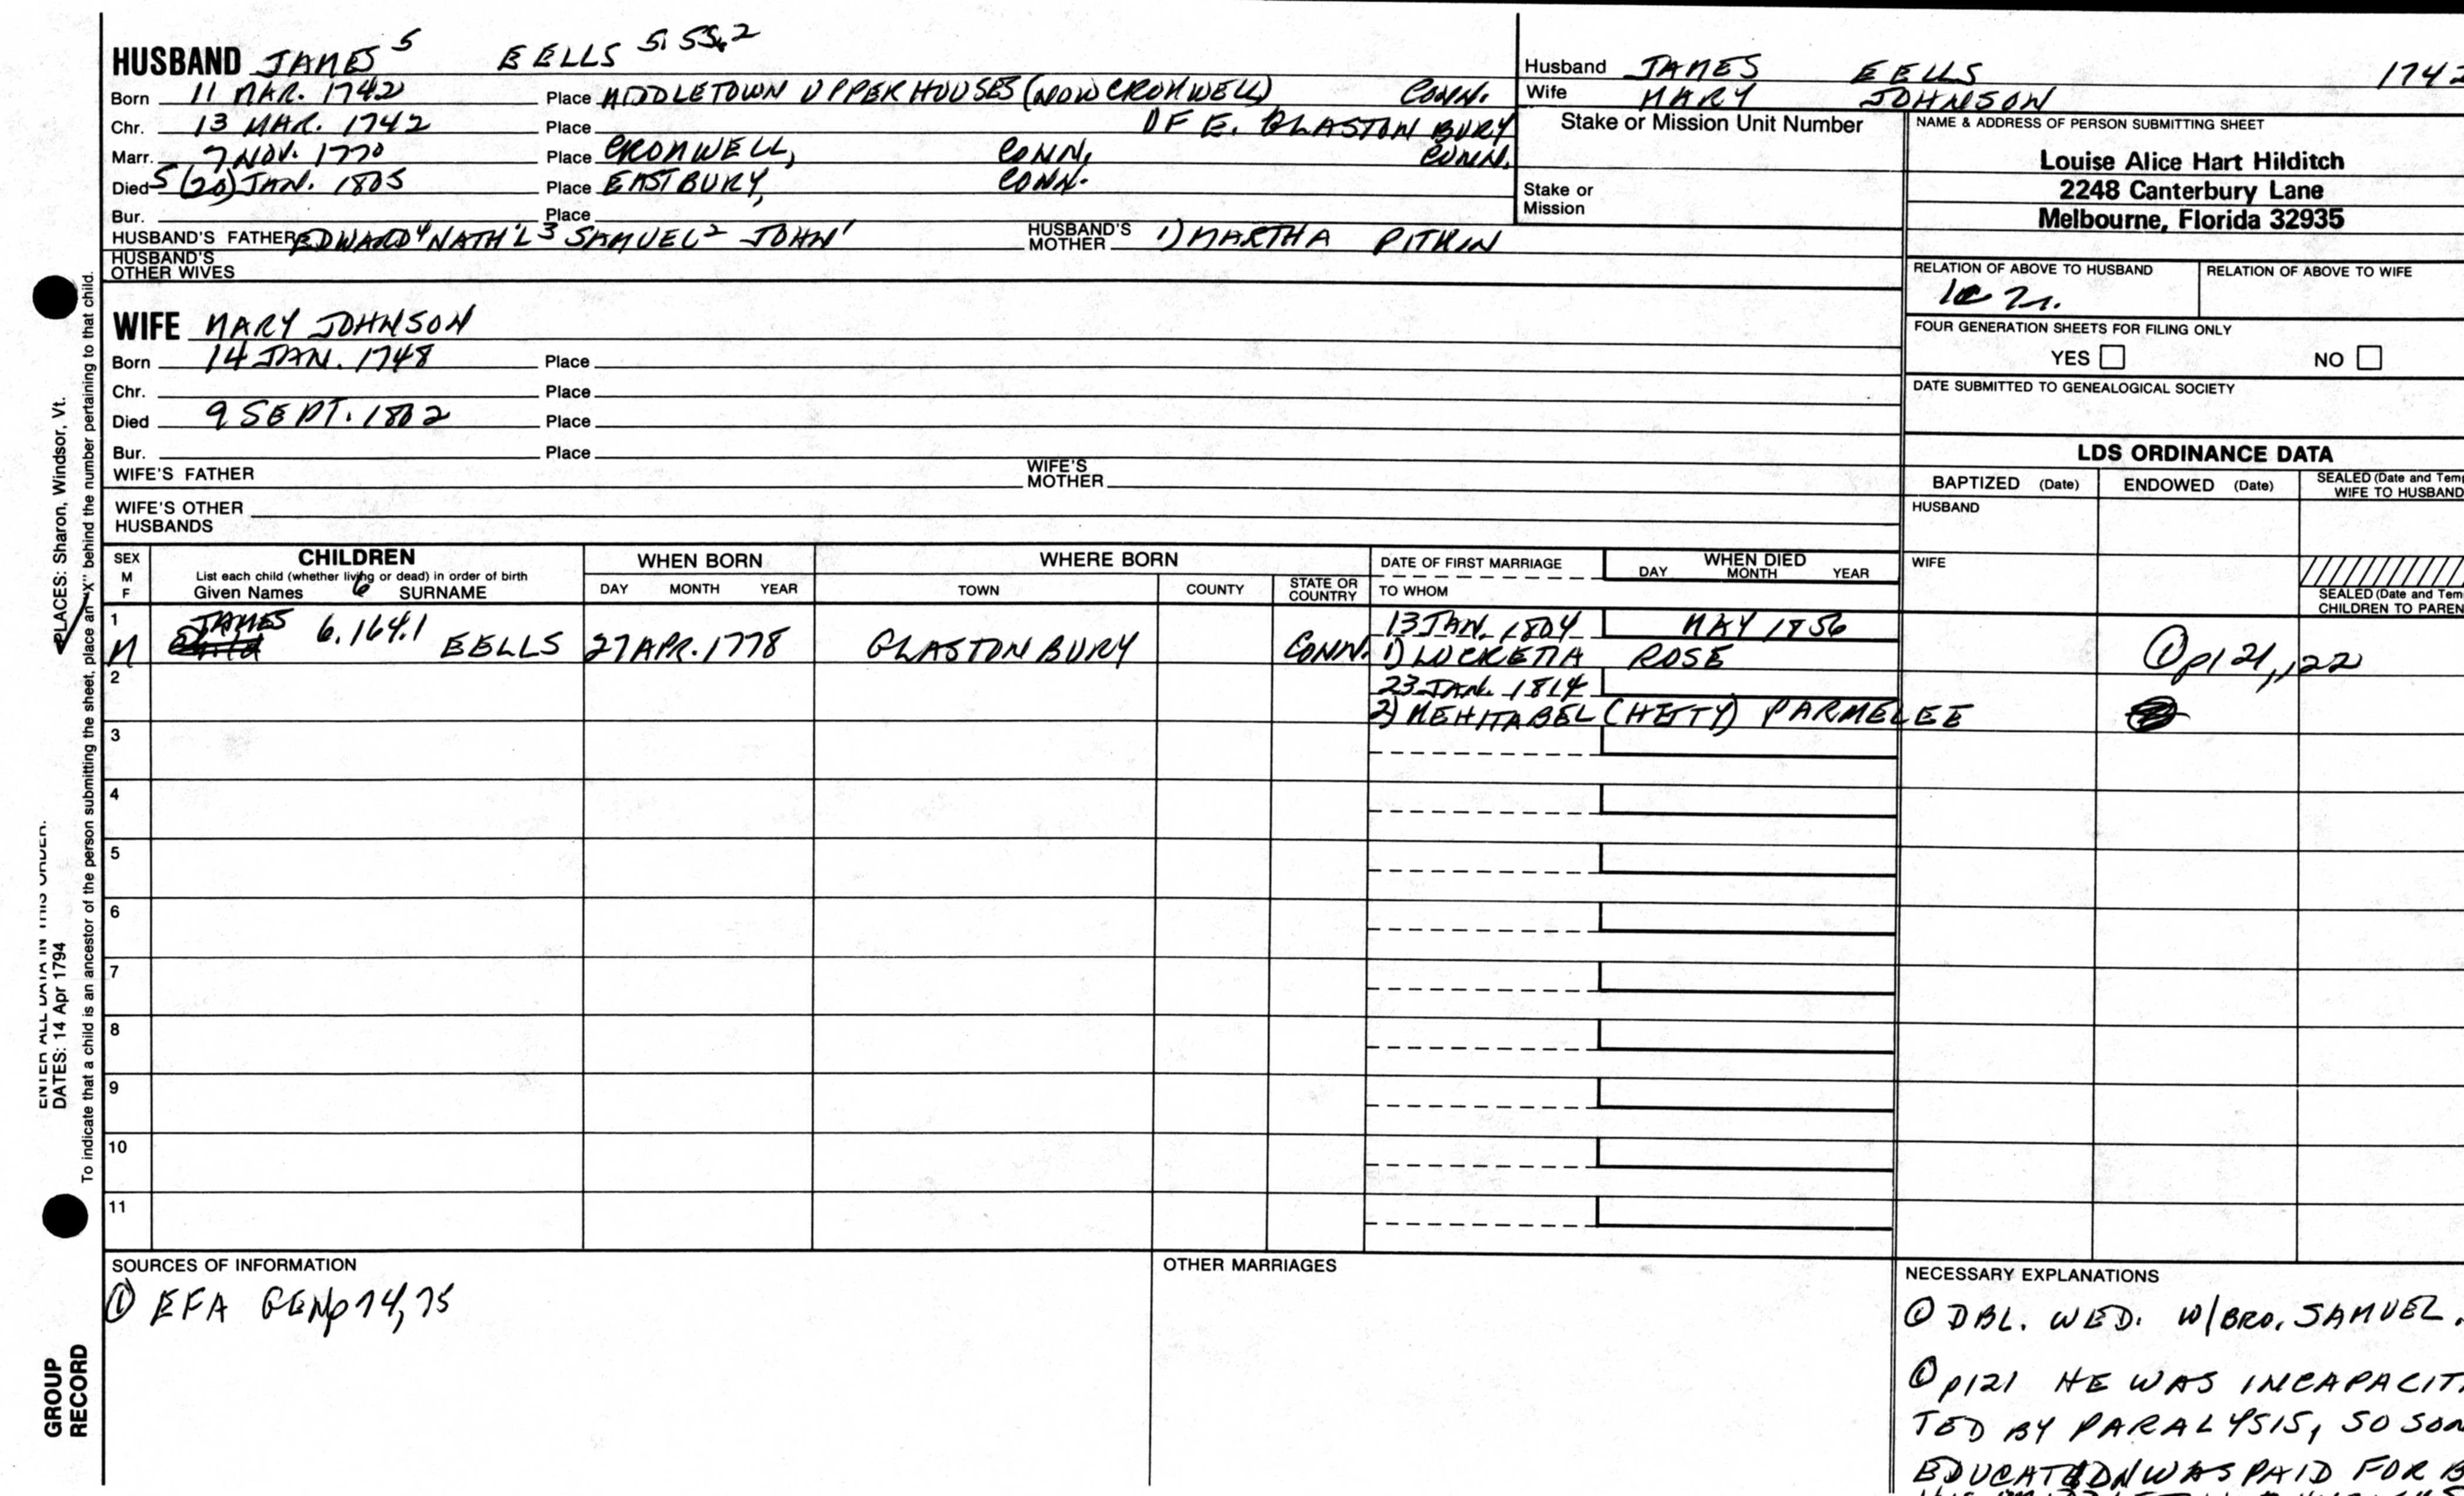 HUSBAND JAMES 5 EELLS 5.55.2
Born 11 MAR. 1742 Place MIDDLETOWN UPPER HOUSES (NOW CROMWELL) CONN.
Chr. 13 MAR. 1742 Place OF E. GLASTONBURY CONN.
Marr. 7 NOV. 1770 Place CROMWELL, CONN.
Died 5 (20) JAN. 1805 Place EASTBURY, CONN.
Bur. Place
HUSBAND'S FATHER EDWARD 4 NATH'L 3 SAMUEL 2 JOHN 1 HUSBAND'S MOTHER 1) MARTHA PITKIN
HUSBAND'S OTHER WIVES
Husband JAMES EELLS 1742
Wife MARY JOHNSON
Stake or Mission Unit Number
Stake or Mission
NAME & ADDRESS OF PERSON SUBMITTING SHEET
Louise Alice Hart Hilditch
2248 Canterbury Lane
Melbourne, Florida 32935
RELATION OF ABOVE TO HUSBAND RELATION OF ABOVE TO WIFE
FOUR GENERATION SHEETS FOR FILING ONLY
YES NO
DATE SUBMITTED TO GENEALOGICAL SOCIETY
WIFE MARY JOHNSON
Born 14 JAN. 1748 Place
Chr. Place
Died 9 SEPT. 1802 Place
Bur. Place
WIFE'S FATHER WIFE'S MOTHER
WIFE'S OTHER HUSBANDS
LDS ORDINANCE DATA
BAPTIZED (Date) ENDOWED (Date) SEALED (Date and Tem
WIFE TO HUSBAND
HUSBAND
WIFE
SEALED (Date and Tem
CHILDREN TO PAREN
SEX M F
CHILDREN
List each child (whether living or dead) in order of birth
Given Names 6 SURNAME
WHEN BORN
DAY MONTH YEAR
WHERE BORN
TOWN COUNTY STATE OR COUNTRY
DATE OF FIRST MARRIAGE
TO WHOM
WHEN DIED
DAY MONTH YEAR
1 M JAMES 6.164.1 EELLS 27 APR. 1778 GLASTONBURY CONN. 13 JAN. 1804 MAY 1856
1) LUCRETIA ROSE ① p121,,122
2 23 JAN. 1814
2) MEHITABEL (HETTY) PARMELEE
3
4
5
6
7
8
9
10
11
SOURCES OF INFORMATION
① EFA GEN p74,75
OTHER MARRIAGES
NECESSARY EXPLANATIONS
① DBL. WED. W/BRO. SAMUEL.
① p121 HE WAS INCAPACIT
TED BY PARALYSIS, SO SON
EDUCATION WAS PAID FOR B
ENTER ALL DATA IN THIS ORDER:
PLACES: Sharon, Windsor, Vt.
DATES: 14 Apr 1794
To indicate that a child is an ancestor of the person submitting the sheet, place an "X" behind the number pertaining to that child.
GROUP
RECORD